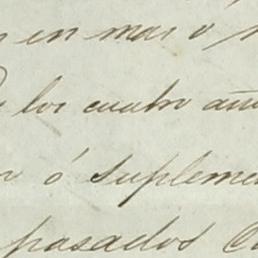 en mas ó
los cuatro año
ó supleme
pasados